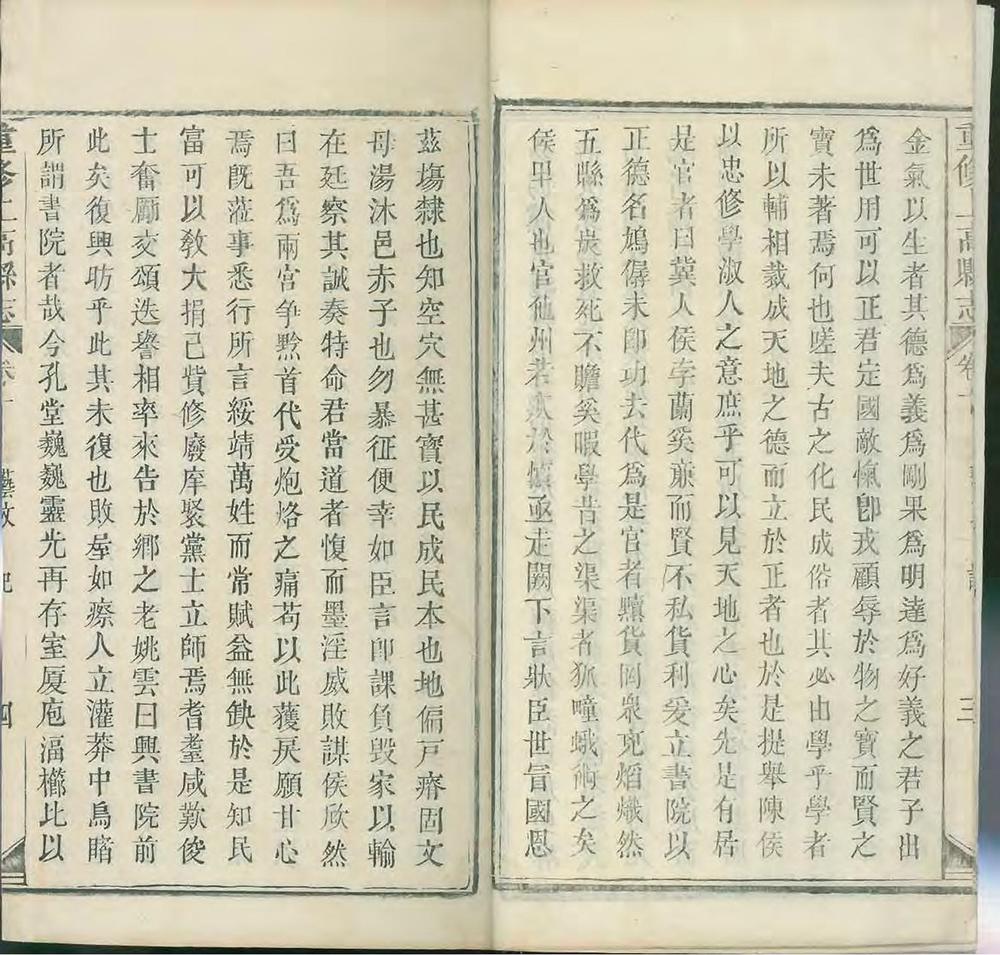 重修上高縣志
卷
三
金氣以生者其德爲義爲剛果爲明達爲好義之君子出
爲世用可以正君定國敵愾卽戎顧辱於物之寶而賢之
寶未著焉何也嗟夫古之化民成俗者其必由學乎學者
所以輔相裁成天地之德而立於正者也於是提舉陳侯
以忠修學淑人之意庶乎可以見天地之心矣先是有居
是官者曰冀人侯孛蘭奚兼而賢不私貨利爰立書院以
正德名鳩僝未卽功去代爲是官者黷貨罔衆兇焰熾然
五縣爲炭救死不贍奚暇學昔之渠渠者狐疃蛾術之矣
侯里人也官他州若於亟走闕下言狀臣世官國恩
茲塲隸也知空穴無甚寶以民成民本也地偏戸瘠固文
母湯沐邑赤子也勿暴征便幸如臣言卽課負毀家以輸
在廷察其誠奏特命君當道者愎而墨淫威敗謀侯欣然
曰吾爲兩宮争黔首代受炮烙之痛苟以此獲戾願甘心
焉旣蒞事悉行所言綏靖萬姓而常賦益無缺於是知民
富可以敎大捐己貲修廢庠聚黨士立師焉耆耋咸歎俊
士奮勵交頌迭譽相率來告於鄉之老姚雲曰興書院前
此矣復興昉乎此其未復也敗屋如瘵人立灌莽中鳥睹
所謂書院者哉今孔堂巍巍靈光再存室厦庖湢櫛比以
重修上高縣志
藝文
記
四